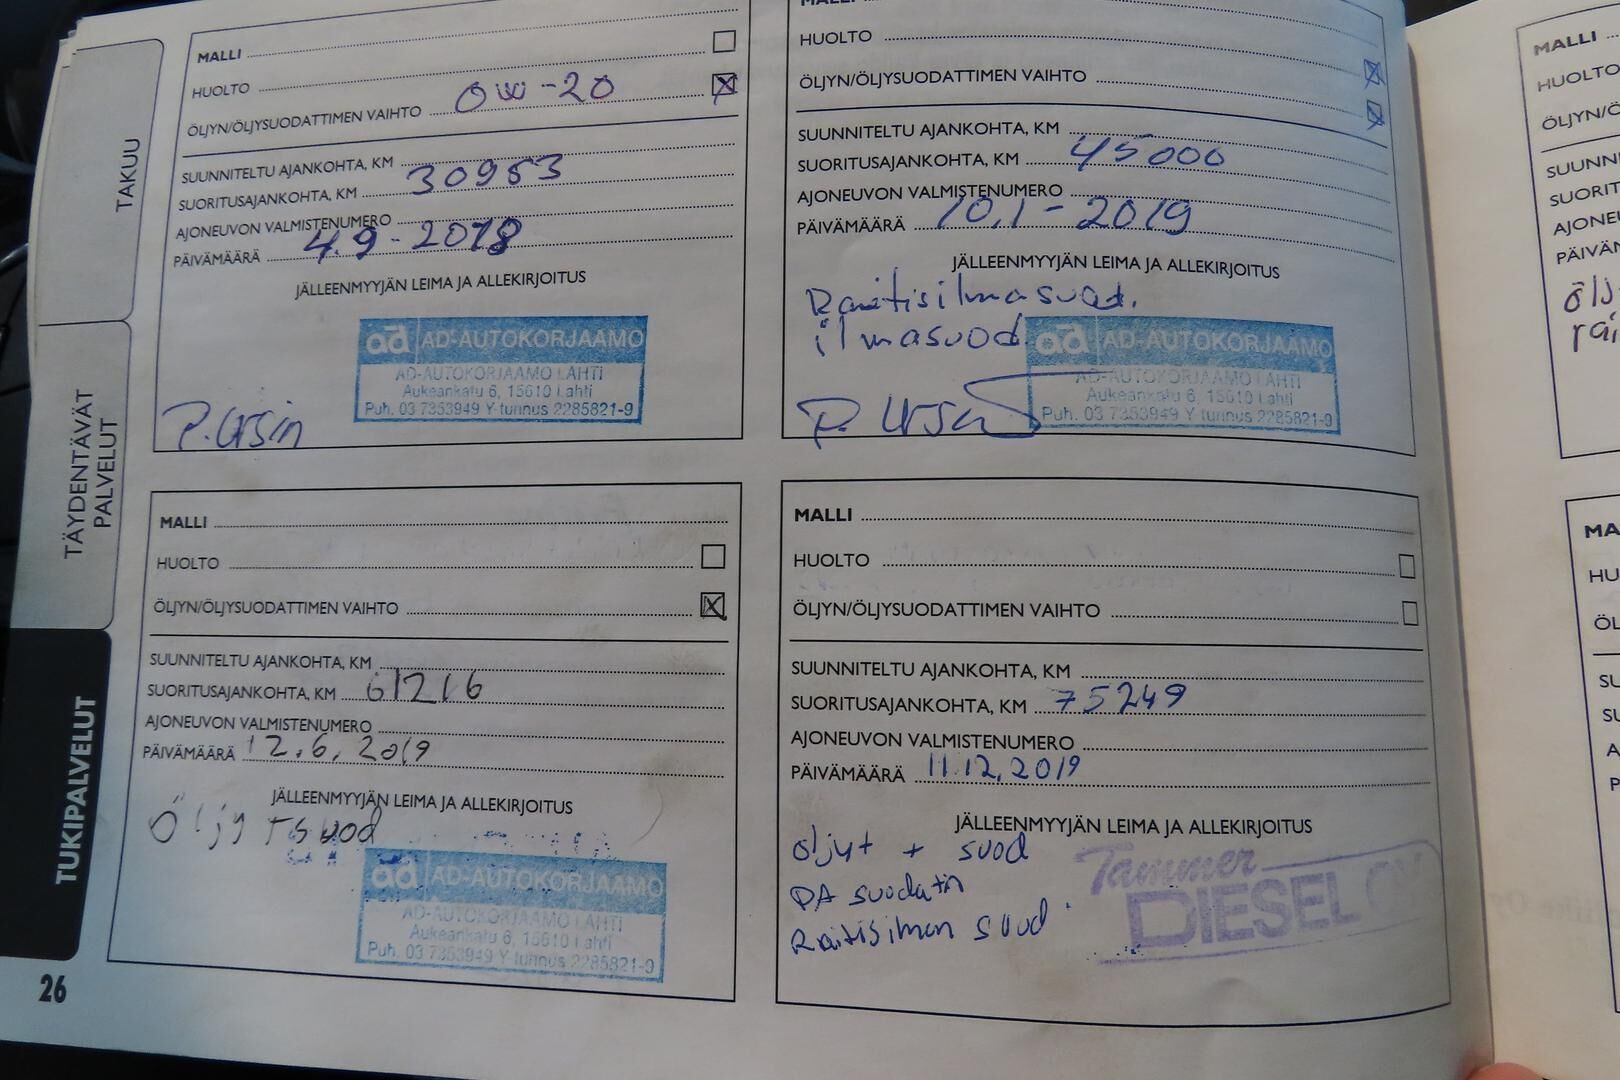 TAKUU
TÄYDENTÄVÄT
PALVELUT
TUKIPALVELUT
26
MALLI
HUOLTO
ÖLJYN/ÖLJYSUODATTIMEN VAIHTO OW-20
SUUNNITELTU AJANKOHTA, KM
SUORITUSAJANKOHTA, KM 30953
AJONEUVON VALMISTENUMERO
PÄIVÄMÄÄRÄ 4.9-2018
JÄLLEENMYYJÄN LEIMA JA ALLEKIRJOITUS
ad AD-AUTOKORJAAMO
AD-AUTOKORJAAMO LAHTI
Aukeankatu 6, 15610 Lahti
Puh. 03 7353949 Y-tunnus 2285821-9
P. Ursin
MALLI
HUOLTO
ÖLJYN/ÖLJYSUODATTIMEN VAIHTO
SUUNNITELTU AJANKOHTA, KM
SUORITUSAJANKOHTA, KM 45000
AJONEUVON VALMISTENUMERO
PÄIVÄMÄÄRÄ 10.1-2019
JÄLLEENMYYJÄN LEIMA JA ALLEKIRJOITUS
Raitisilmasuod.
ilmasuod.
ad AD-AUTOKORJAAMO
AD-AUTOKORJAAMO LAHTI
Aukeankatu 6, 15610 Lahti
Puh. 03 7353949 Y-tunnus 2285821-9
P. Ursin
MALLI
HUOLTO
ÖLJYN/ÖLJYSUODATTIMEN VAIHTO
SUUNNITELTU AJANKOHTA, KM
SUORITUSAJANKOHTA, KM 61216
AJONEUVON VALMISTENUMERO
PÄIVÄMÄÄRÄ 12.6.2019
JÄLLEENMYYJÄN LEIMA JA ALLEKIRJOITUS
Öljyt suod
ad AD-AUTOKORJAAMO
AD-AUTOKORJAAMO LAHTI
Aukeankatu 6, 15610 Lahti
Puh. 03 7353949 Y-tunnus 2285821-9
MALLI
HUOLTO
ÖLJYN/ÖLJYSUODATTIMEN VAIHTO
SUUNNITELTU AJANKOHTA, KM
SUORITUSAJANKOHTA, KM 75249
AJONEUVON VALMISTENUMERO
PÄIVÄMÄÄRÄ 11.12.2019
JÄLLEENMYYJÄN LEIMA JA ALLEKIRJOITUS
öljyt + suod
PA suodatin
Raitisilman suod
Tammer
DIESEL OY
MALLI
HUOLTO
ÖLJYN/Ö
SUUNN
SUORIT
AJONEU
PÄIVÄM
ölj
rai
MA
HU
ÖL
SU
SU
A
P